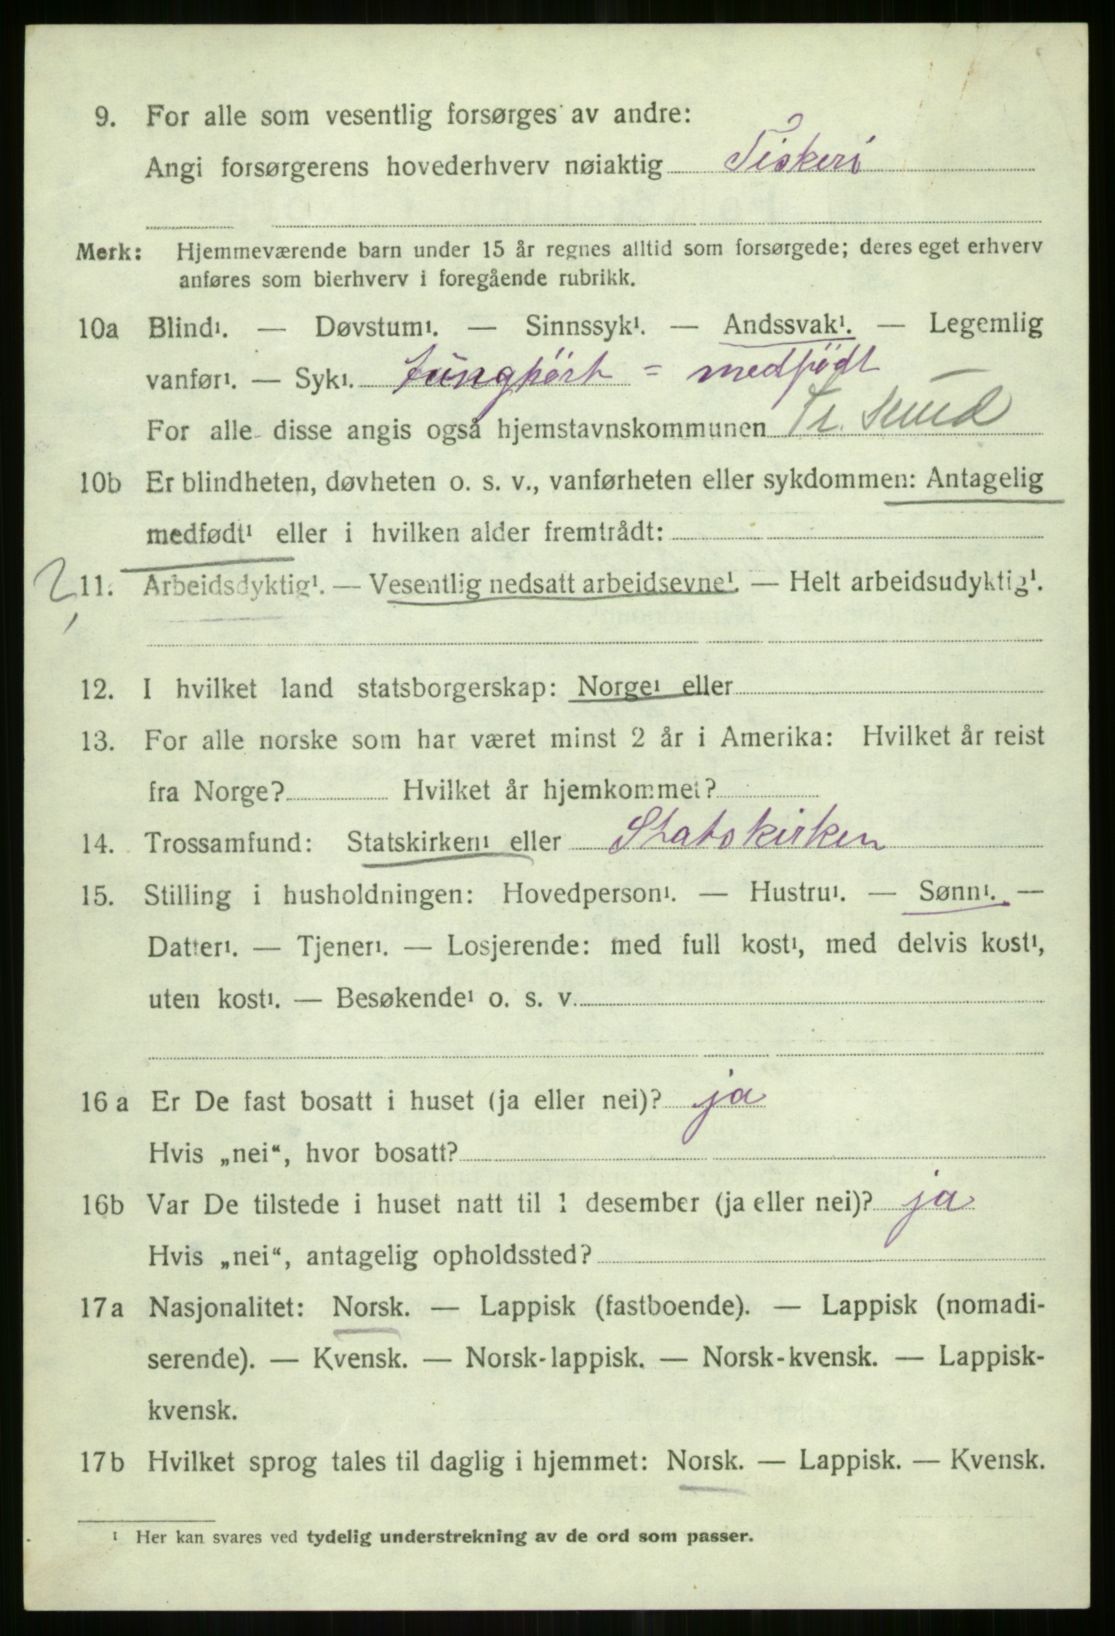 9. For alle som vesentlig forsørges av andre:
Angi forsørgerens hovederhverv nøiaktig Fiskeri
Merk: Hjemmeværende barn under 15 år regnes alltid som forsørgede; deres eget erhverv
anføres som bierhverv i foregående rubrikk.
10a Blind¹. — Døvstum¹. — Sinnssyk¹. — Andssvak¹. — Legemlig
vanfør¹. — Syk¹. tunghört = medfödt
For alle disse angis også hjemstavnskommunen Tr. sund
10b Er blindheten, døvheten o. s. v., vanførheten eller sykdommen: Antagelig
medfødt¹ eller i hvilken alder fremtrådt:
11. Arbeidsdyktig¹. — Vesentlig nedsatt arbeidsevne¹. — Helt arbeidsudyktig¹.
12. I hvilket land statsborgerskap: Norge¹ eller
13. For alle norske som har været minst 2 år i Amerika: Hvilket år reist
fra Norge? Hvilket år hjemkommet?
14. Trossamfund: Statskirken¹ eller Statskirken
15. Stilling i husholdningen: Hovedperson¹. — Hustru¹. — Sønn¹. —
Datter¹. — Tjener¹. — Losjerende: med full kost¹, med delvis kost¹,
uten kost¹. — Besøkende¹ o. s. v.
16 a Er De fast bosatt i huset (ja eller nei)? ja
Hvis „nei“, hvor bosatt?
16b Var De tilstede i huset natt til 1 desember (ja eller nei)? ja
Hvis „nei“, antagelig opholdssted?
17a Nasjonalitet: Norsk. — Lappisk (fastboende). — Lappisk (nomadi-
serende). — Kvensk. — Norsk-lappisk. — Norsk-kvensk. — Lappisk-
kvensk.
17b Hvilket sprog tales til daglig i hjemmet: Norsk. — Lappisk. — Kvensk.
¹ Her kan svares ved tydelig understrekning av de ord som passer.